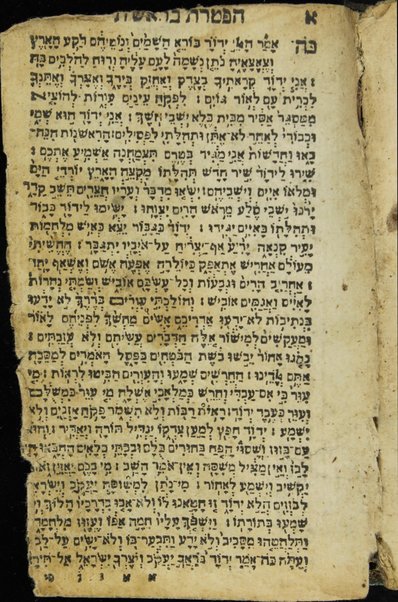 א הפטרת בראשית
כה אמר האל ידוד בורא השמים ונוטיהם רוקע הארץ
וצאצאיה נותן נשמה לעם עליה ורוח להולכים בה
: אני ידוד קראתיך בצדק ואחזק בידך ואצרך ואתנך
לברית עם לאור גוים : לפקח עינים עורות להוציא
ממסגר אסיר מבית כלא ישבי חשך : אני ידוד הוא שמי
וכבודי לאחר לא אתן ותהלתי לפסילים : הראשנות הנה
באו וחדשות אני מגיד בטרם תצמחנה אשמיע אתכם :
שירו לידוד שיר חדש תהלתו מקצה הארץ יורדי הים
ומלואו איים וישביהם : ישאו מדבר ועריו חצרים תשב קדר
ירנו ישבי סלע מראש הרים יצוחו : ישימו לידוד כבוד
ותהלתו באיים יגידו : ידוד כגבור יצא כאיש מלחמות
יעיר קנאה יריע אף יצריח על איביו יתגבר : החשיתי
מעולם אחריש אתאפק כיולדה אפעה אשם ואשאף יחד
: אחריב הרים וגבעות וכל עשבם אוביש ושמתי נהרות
לאיים ואגמים אוביש : והולכתי עורים בדרך לא ידעו
בנתיבות לא ידעו אדריכם אשים מחשך לפניהם לאור
ומעקשים למישור אלה הדברים עשיתם ולא עזבתים :
נסגו אחור יבשו בשת הבטחים בפסל האמרים למסכה
אתם אלהינו : החרשים שמעו והעורים הביטו לראות : מי
עור כי אם עבדי וחרש כמלאכי אשלח מי עור כמשלם
ועור כעבד ידוד : ראית רבות ולא תשמר פקח אזנים ולא
ישמע : ידוד חפץ למען צדקו יגדיל תורה ויאדיר : והוא
עם בזוז ושסוי הפח בחורים כלם ובבתי כלאים החבאו היו
לבז ואין מציל משסה ואין אמר השב : מי בכם יאזין זאת
יקשיב וישמע לאחור : מי נתן למשוסה יעקב וישראל
לבזזים הלא ידוד זו חטאנו לו ולא אבו בדרכיו הלוך ולא
שמעו בתורתו : וישפך עליו חמה אפו ועזוז מלחמה
ותלהטהו מסביב ולא ידע ותבער בו ולא ישים על לב :
ועתה כה אמר ידוד בראך יעקב ויצרך ישראל אל תירא